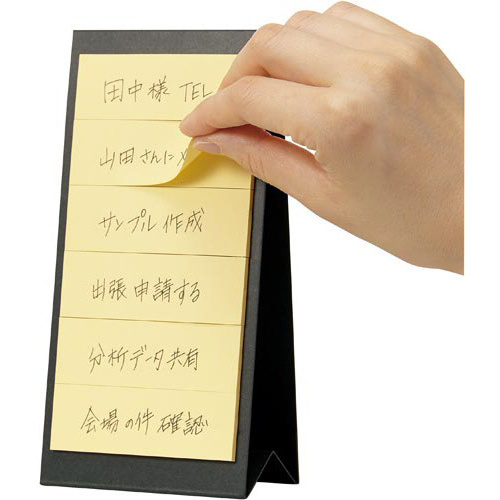 田中様 TEL
山田さんに
サンプル作成
出張申請する
分析データ共有
会場の件 確認